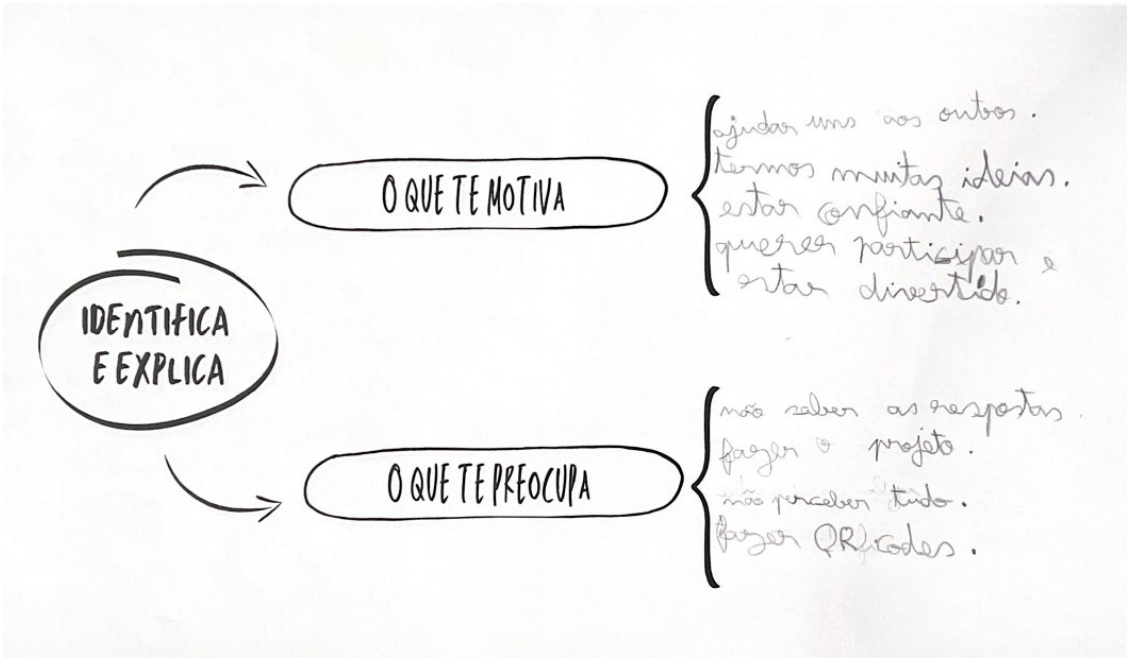 O QUE TE MOTIVA
ajudar uns aos outros.
termos muitas ideias.
estar confiante.
querer participar e
estar divertido.
IDENTIFICA
E EXPLICA
O QUE TE PREOCUPA
não saber as respostas.
fazer o projeto.
não perceber tudo.
fazer QR codes.